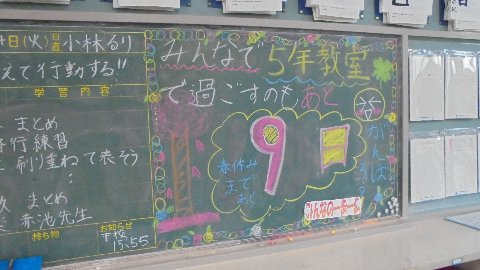 日(火) 日直 小林るり
えて行動する!!
学習内容
まとめ
行練習
刷り重ねて表そう
まとめ
赤池先生
持ち物
お知らせ
下校
15:55
みんなで5年教室
で過ごすのもあと
9日
春休み
まで
あと
がんばろう
みんなの一歩一歩